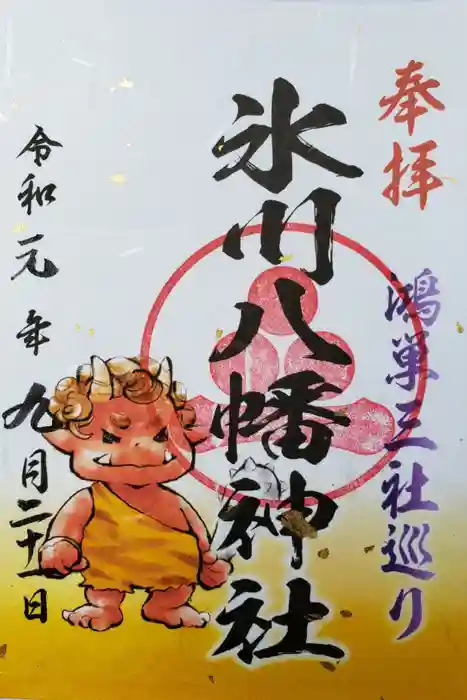 奉拝
鴻巣三社巡り
氷川八幡神社
令和元年九月二十一日